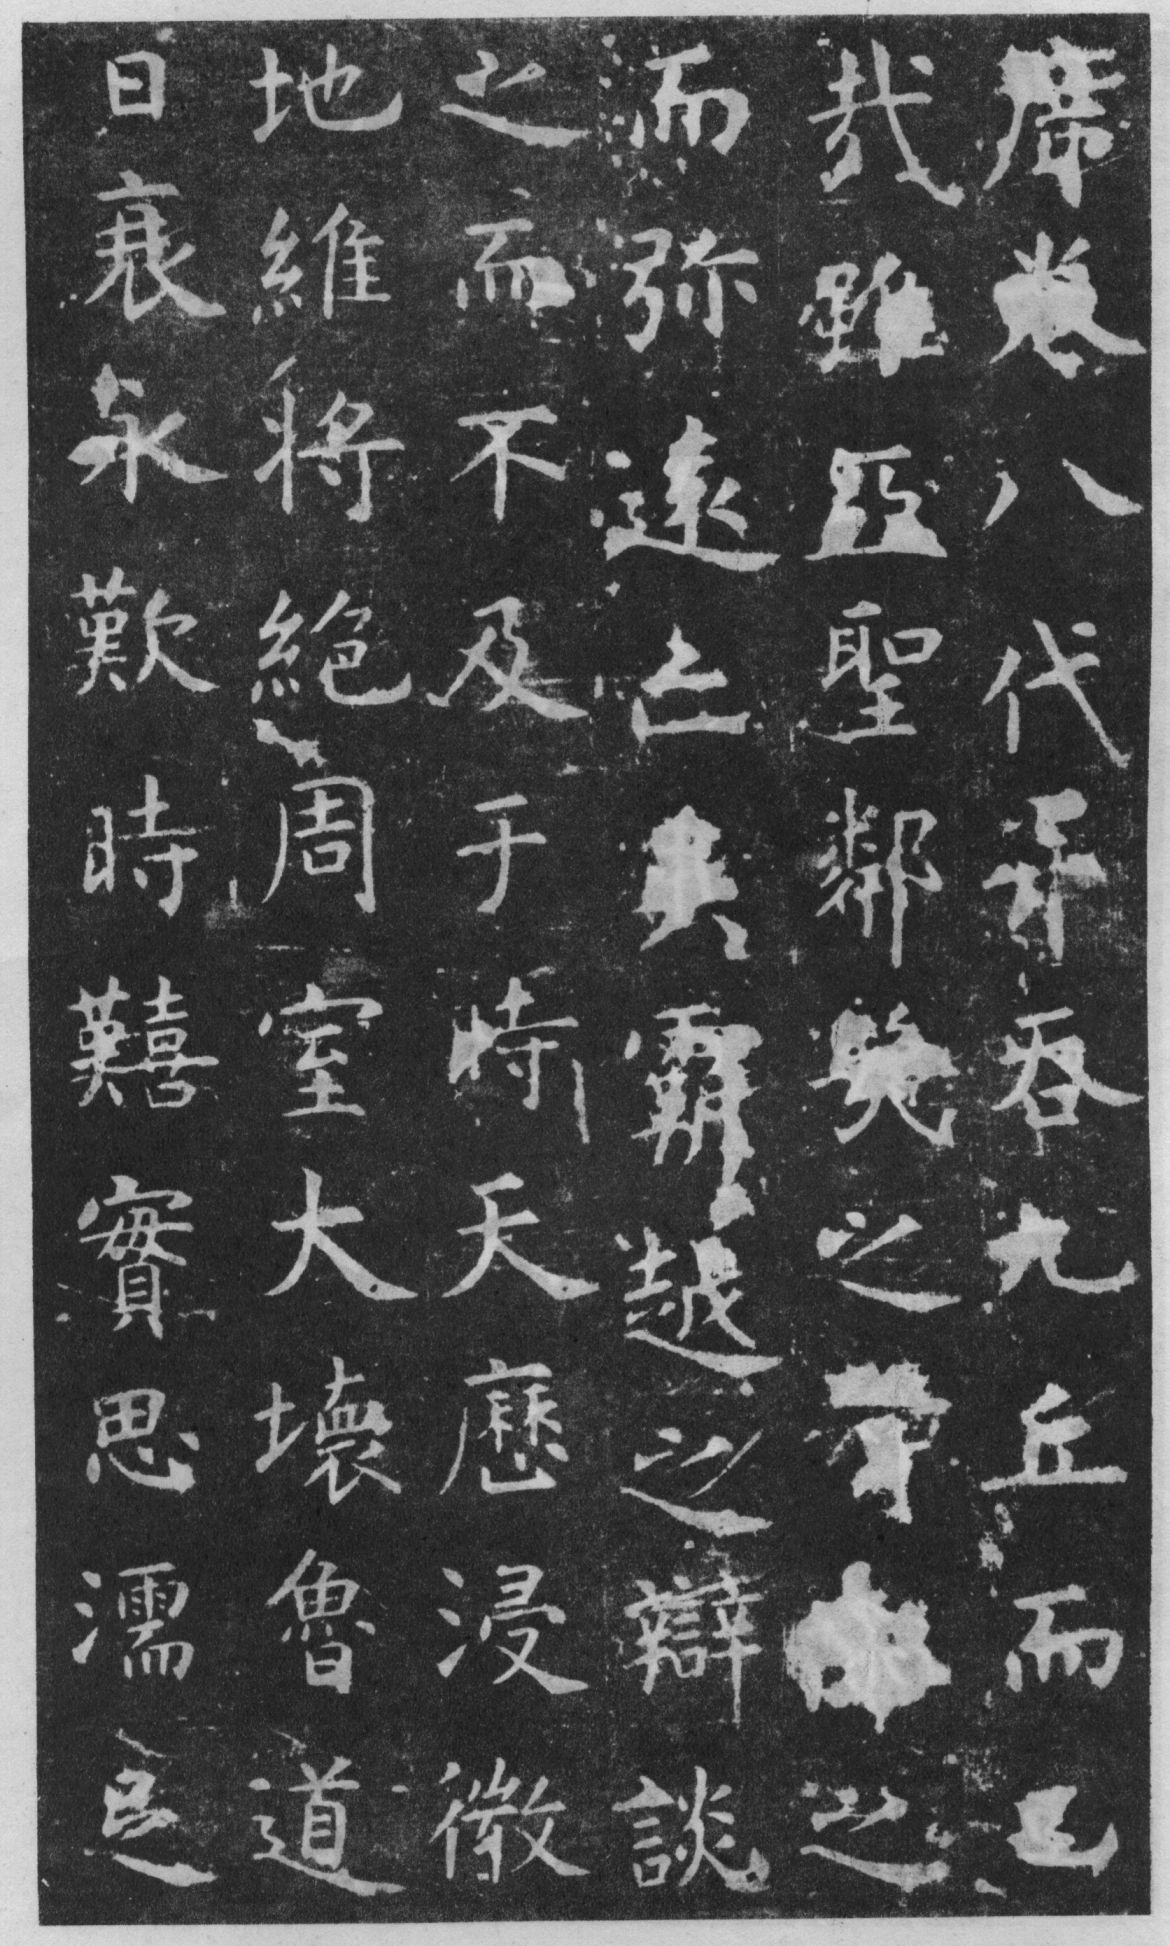 席卷八代吞九丘而已
哉雖亞聖鄰之之
而弥遠立霸越之辯談
之而不及于時天曆浸微
地維將絕周室大壞魯道
日衰永歎時囏實思濡足